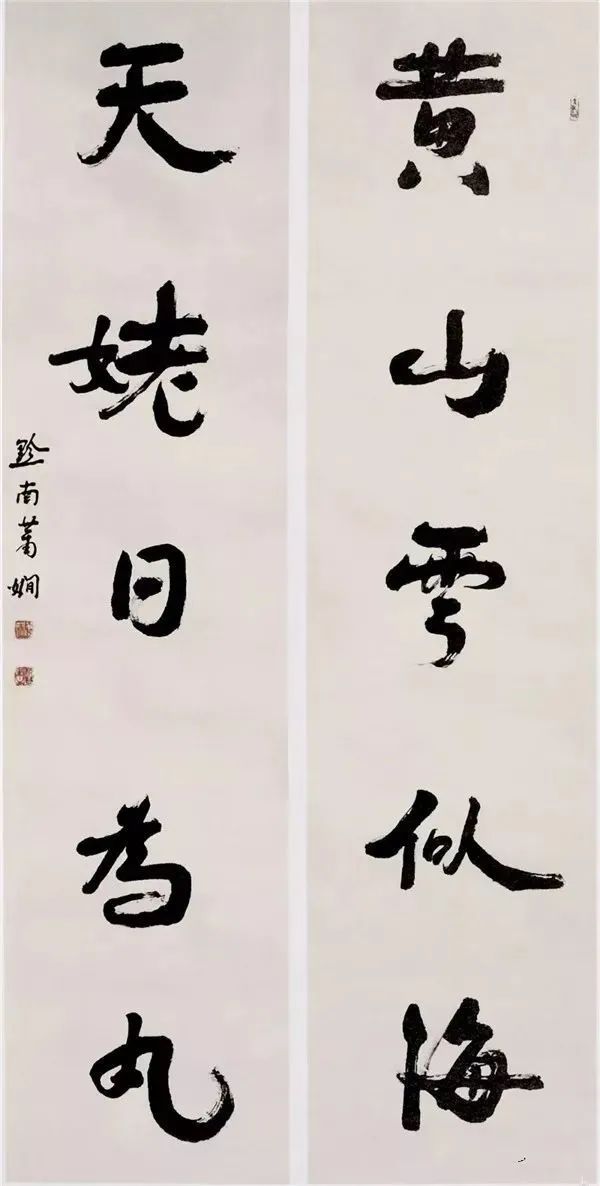 黄山雲似海
天姥日為丸
黔南蕭嫻